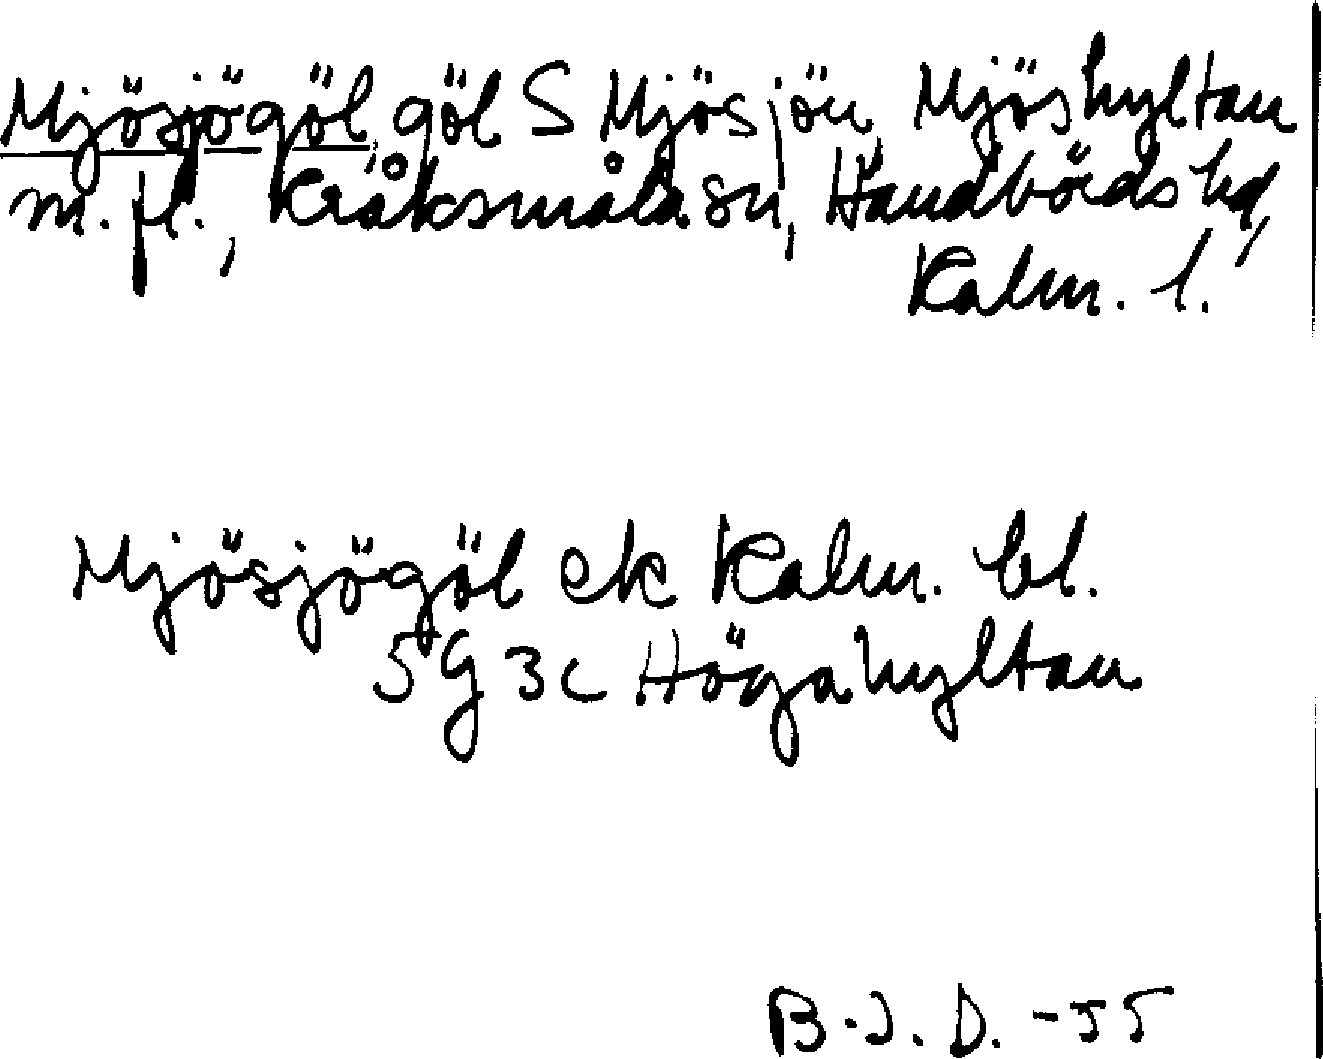 Mjösjögöl, göl S Mjösjön, Mjöshyltan
m. fl., Kråksmåla sn, Handbörds hd,
Kalm. l.
Mjösjögöl ek Kalm. bl.
5G 3c Högahyltan
B.J.D. -55